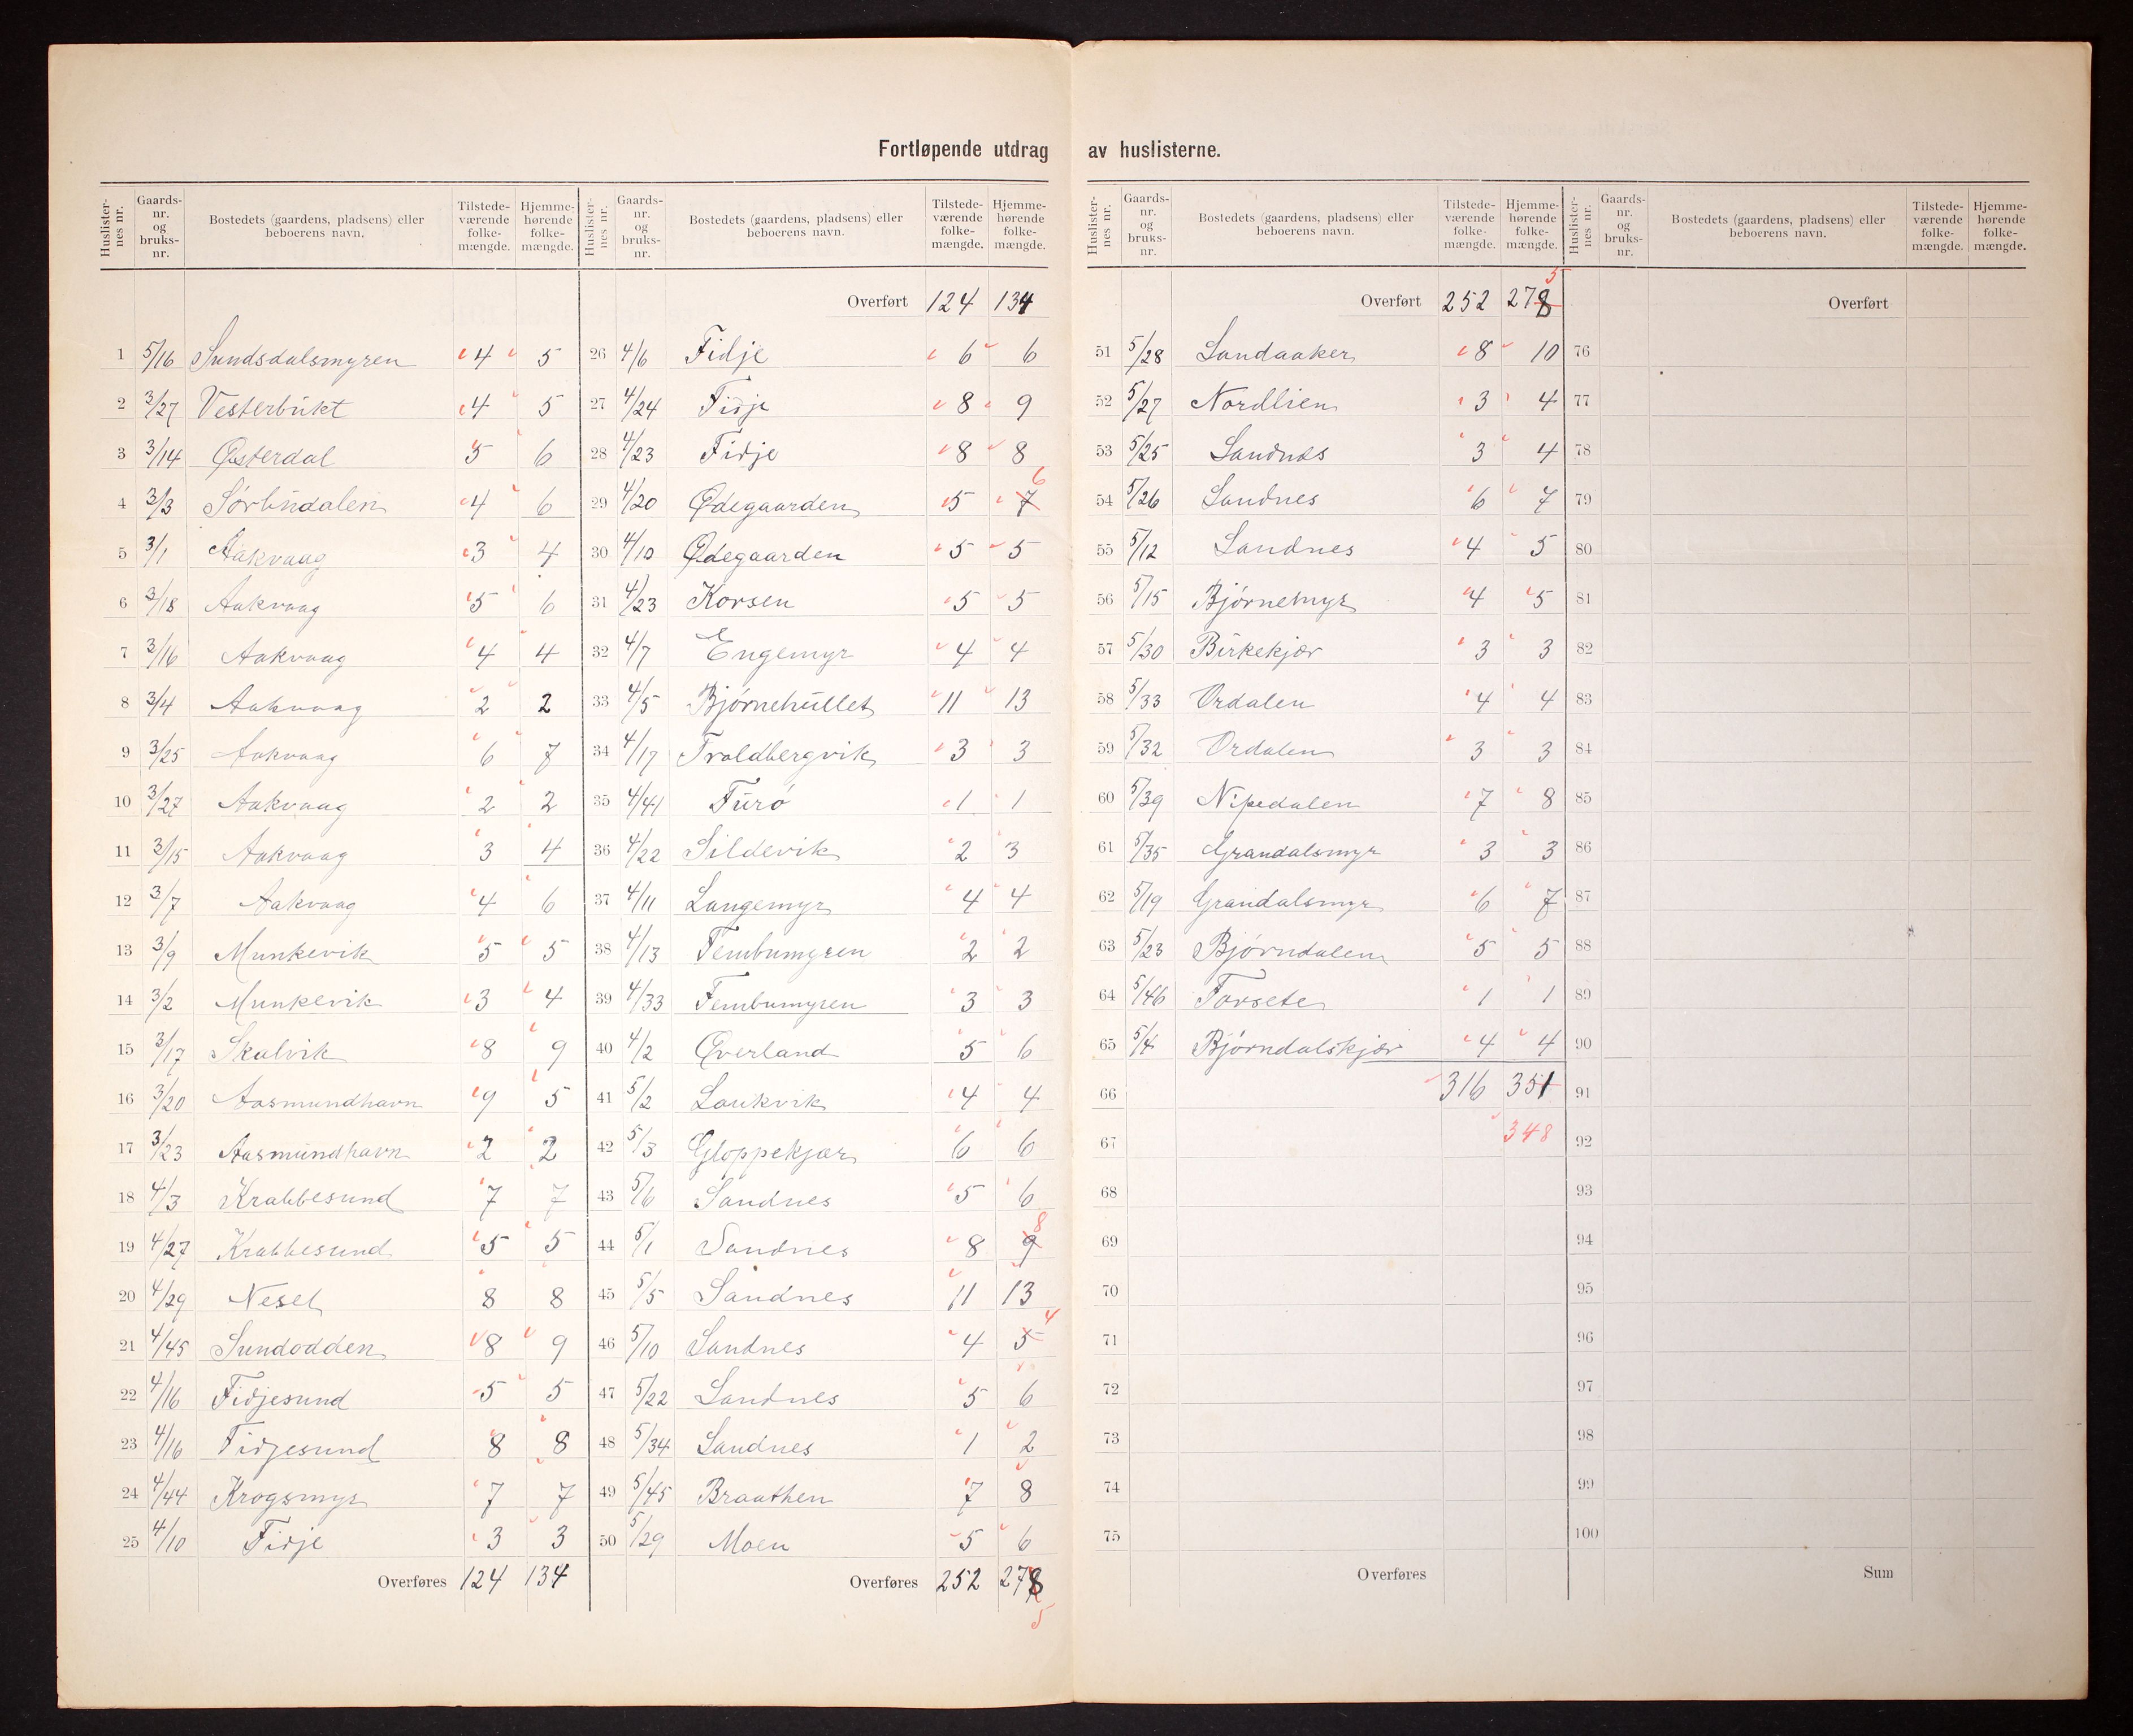 Fortløpende utdrag av huslisterne.
Huslister- nes nr. | Gaards- nr. og bruks- nr. | Bostedets (gaardens, pladsens) eller beboerens navn. | Tilstede- værende folke- mængde. | Hjemme- hørende folke- mængde.
1 5/16 Sundsdalsmyren 4 5
2 3/27 Vesterbukt 4 5
3 3/14 Østerdal 5 6
4 3/3 Sørbudalen 4 6
5 3/1 Aakvaag 3 4
6 3/18 Aakvaag 5 6
7 3/16 Aakvaag 4 4
8 3/4 Aakvaag 2 2
9 3/25 Aakvaag 6 7
10 3/27 Aakvaag 2 2
11 3/15 Aakvaag 3 4
12 3/7 Aakvaag 4 6
13 3/9 Munkevik 5 5
14 3/2 Munkevik 3 4
15 3/17 Skalvik 8 9
16 3/20 Aasmundhavn 9 5
17 3/23 Aasmundhavn 2 2
18 4/3 Krabbesund 7 7
19 4/27 Krabbesund 5 5
20 4/29 Neset 8 8
21 4/45 Sundodden 8 9
22 4/16 Fidjesund 5 5
23 4/16 Fidjesund 8 8
24 4/44 Krogsmyr 7 7
25 4/10 Fidje 3 3
Overføres 124 134
Huslister- nes nr. | Gaards- nr. og bruks- nr. | Bostedets (gaardens, pladsens) eller beboerens navn. | Tilstede- værende folke- mængde. | Hjemme- hørende folke- mængde.
Overført 124 134
26 4/6 Fidje 6 6
27 4/24 Fidje 8 9
28 4/23 Fidje 8 8
29 4/20 Ødegaarden 5 7 6
30 4/10 Ødegaarden 5 5
31 4/23 Korsen 5 5
32 4/7 Engemyr 4 4
33 4/5 Bjørnehullet 11 13
34 4/17 Troldbergvik 3 3
35 4/41 Furø 1 1
36 4/22 Sildevik 2 3
37 4/11 Langemyr 4 4
38 4/13 Fembumyren 2 2
39 4/33 Fembumyren 3 3
40 4/2 Øverland 5 6
41 5/2 Laukvik 4 4
42 5/3 Gloppekjær 6 6
43 5/6 Sandnes 5 6
44 5/1 Sandnes 8 9 8
45 5/5 Sandnes 11 13
46 5/10 Sandnes 4 5 4
47 5/22 Sandnes 5 6
48 5/34 Sandnes 1 2
49 5/45 Braathen 7 8
50 5/29 Moen 5 6
Overføres 252 278 5
Huslister- nes nr. | Gaards- nr. og bruks- nr. | Bostedets (gaardens, pladsens) eller beboerens navn. | Tilstede- værende folke- mængde. | Hjemme- hørende folke- mængde.
Overført 252 278 5
51 5/28 Sandaaker 8 10
52 5/27 Nordlien 3 4
53 5/25 Sandnes 3 4
54 5/26 Sandnes 6 7
55 5/12 Sandnes 4 5
56 5/15 Bjørnemyr 4 5
57 5/30 Birkekjær 3 3
58 5/33 Ordalen 4 4
59 5/32 Ordalen 3 3
60 5/39 Nipedalen 7 8
61 5/35 Grandalsmyr 3 3
62 5/19 Grandalsmyr 6 7
63 5/23 Bjørndalen 5 5
64 5/46 Torsete 1 1
65 5/4 Bjørndalskjær 4 4
66 316 351
67 348
68
69
70
71
72
73
74
75
Overføres
Huslister- nes nr. | Gaards- nr. og bruks- nr. | Bostedets (gaardens, pladsens) eller beboerens navn. | Tilstede- værende folke- mængde. | Hjemme- hørende folke- mængde.
Overført
76
77
78
79
80
81
82
83
84
85
86
87
88
89
90
91
92
93
94
95
96
97
98
99
100
Sum